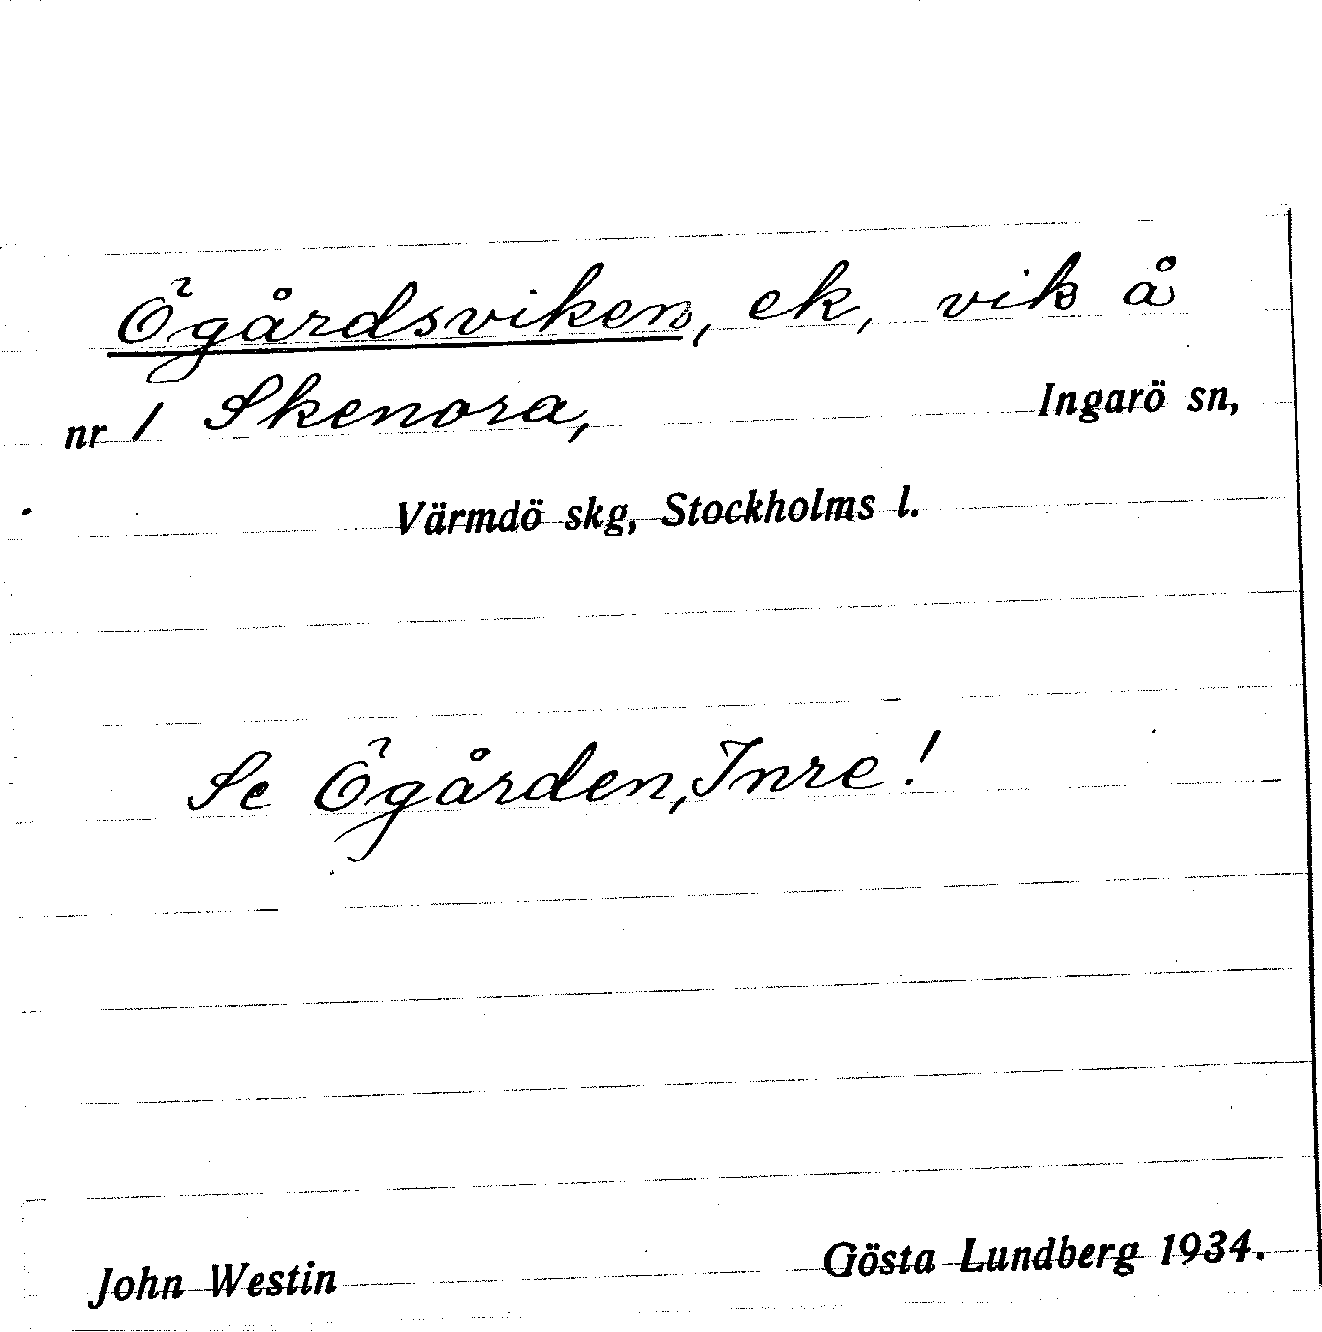 Ögårdsviken, ek, vik å
nr 1 Skenora, Ingarö sn,
Värmdö skg, Stockholms l.
Se Ögården, Inre!
John Westin Gösta Lundberg 1934.